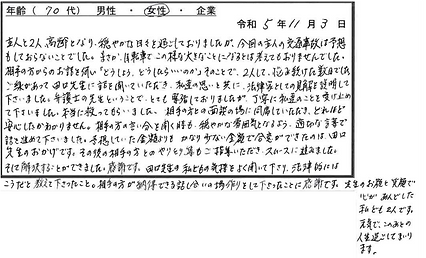 年齢（70代） 男性 ・ 女性 ・ 企業
令和 5 年 11 月 3 日
主人と2人、高齢となり、穏やかな日々を過ごしておりましたが、今回の主人の交通事故は予想
もしておらないことでした。まさか、自転車でこの様な大きなことになるとは考えてもおりませんでした。
相手の方からのお話を伺い「どうしよう、どうしたらいいのか」そのことで、2人して、悩み続けた数日でした
ご縁があって田口先生に話を聞いていただき、私達の思いと共に、法律家としての見解を説明し
て下さいました。弁護士の先生ということで、とても緊張しておりましたが、丁寧に私達のことを受け止め
て下さいました。本当に救ってもらいました。相手の方との面談の場に同席していただき、どれほど
安心したかわかりません。相手の方の言い分を聞く時も、穏やかな雰囲気となるよう、適切な言葉で
話を進めて下さいました。予想していた金額よりも かなり少ない金額で合意ができたのは、田口
先生のおかげです。その後の相手の方とのやりとり等もご指導いただき、スムーズに進みました。
そして解決することができました。感謝です。田口先生の私どもの気持をよく聞いて下さり、法律的には
こうだと教えて下さったこと。相手の方が納得できる話し合いの場作りをして下さったことに感謝です。先生のお顔と笑顔で
心が和んでした
私ども2人です。
元気で、このあとの
人生過ごしてまいり
ます。